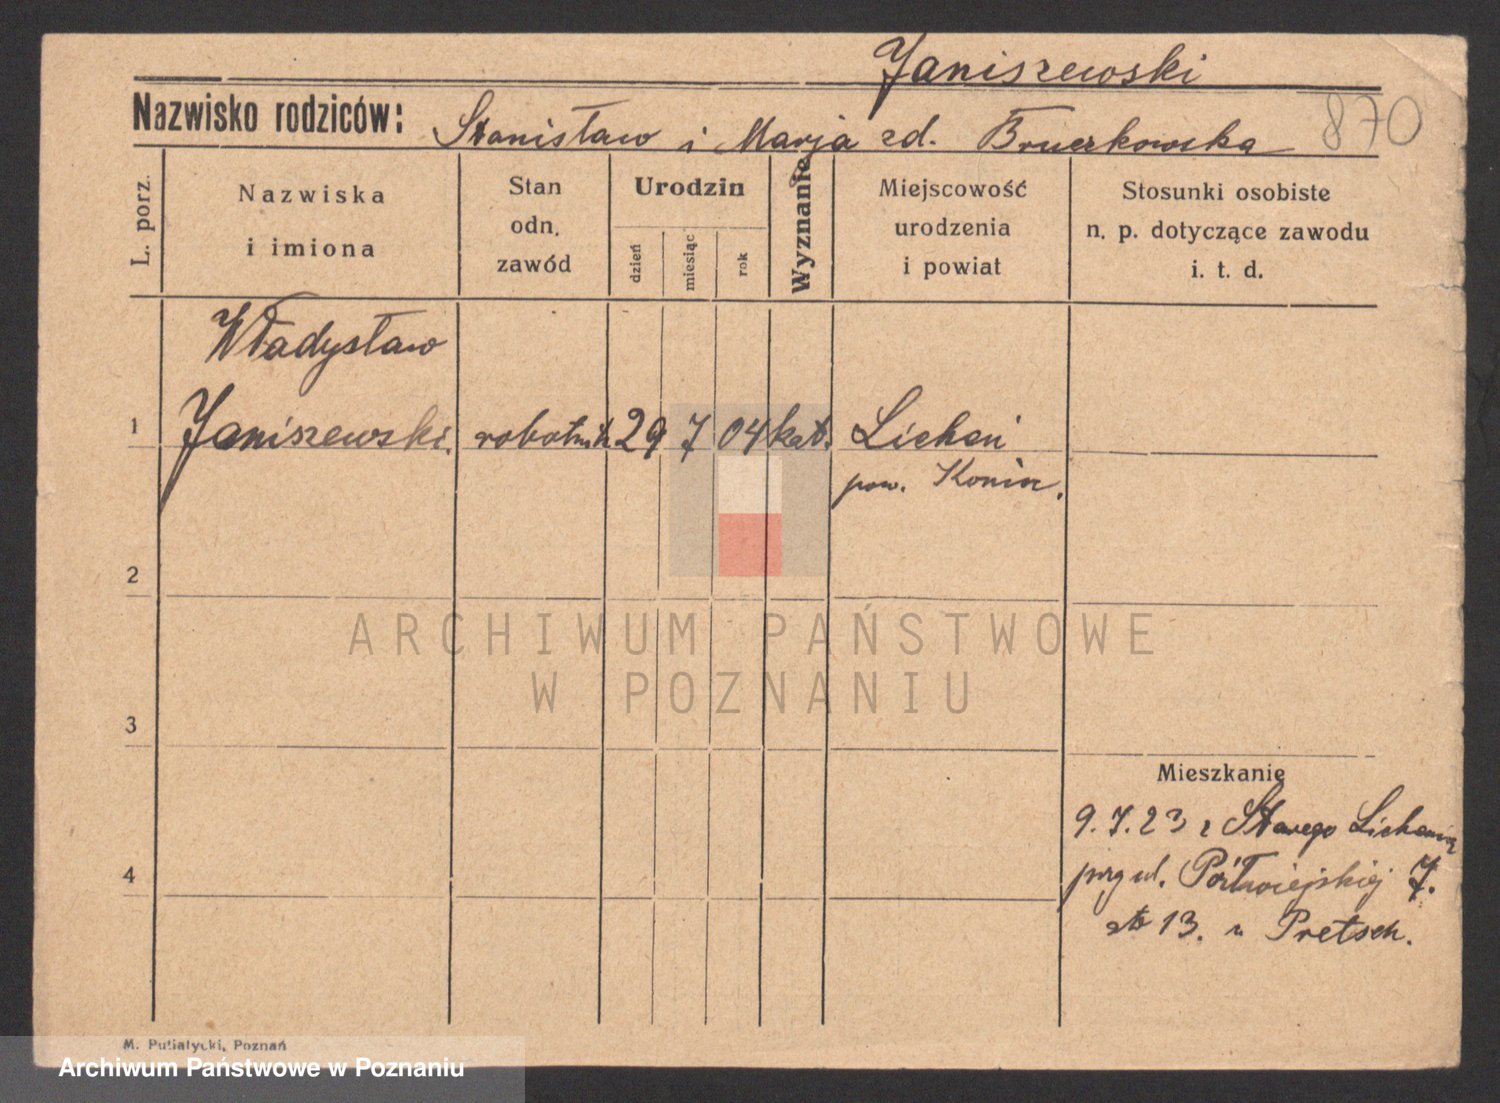 Janiszewski
Nazwisko rodziców: Stanisław i Marja zd. Bruczkowska 870
L. porz.
Nazwiska
i imiona
Stan
odn.
zawód
Urodzin
dzień
miesiąc
rok
Wyznanie
Miejscowość
urodzenia
i powiat
Stosunki osobiste
n. p. dotyczące zawodu
i. t. d.
Władysław
1 Janiszewski. robotnik 29 7 04 kat. Licheń
pow. Konin.
2
ARCHIWUM PAŃSTWOWE
W POZNANIU
3
Mieszkanie
9.7.23 z Starego Lichenia
4
przy ul. Półwiejskiej 7.
13. u Pretsch.
M. Putiatycki, Poznań
Archiwum Państwowe w Poznaniu